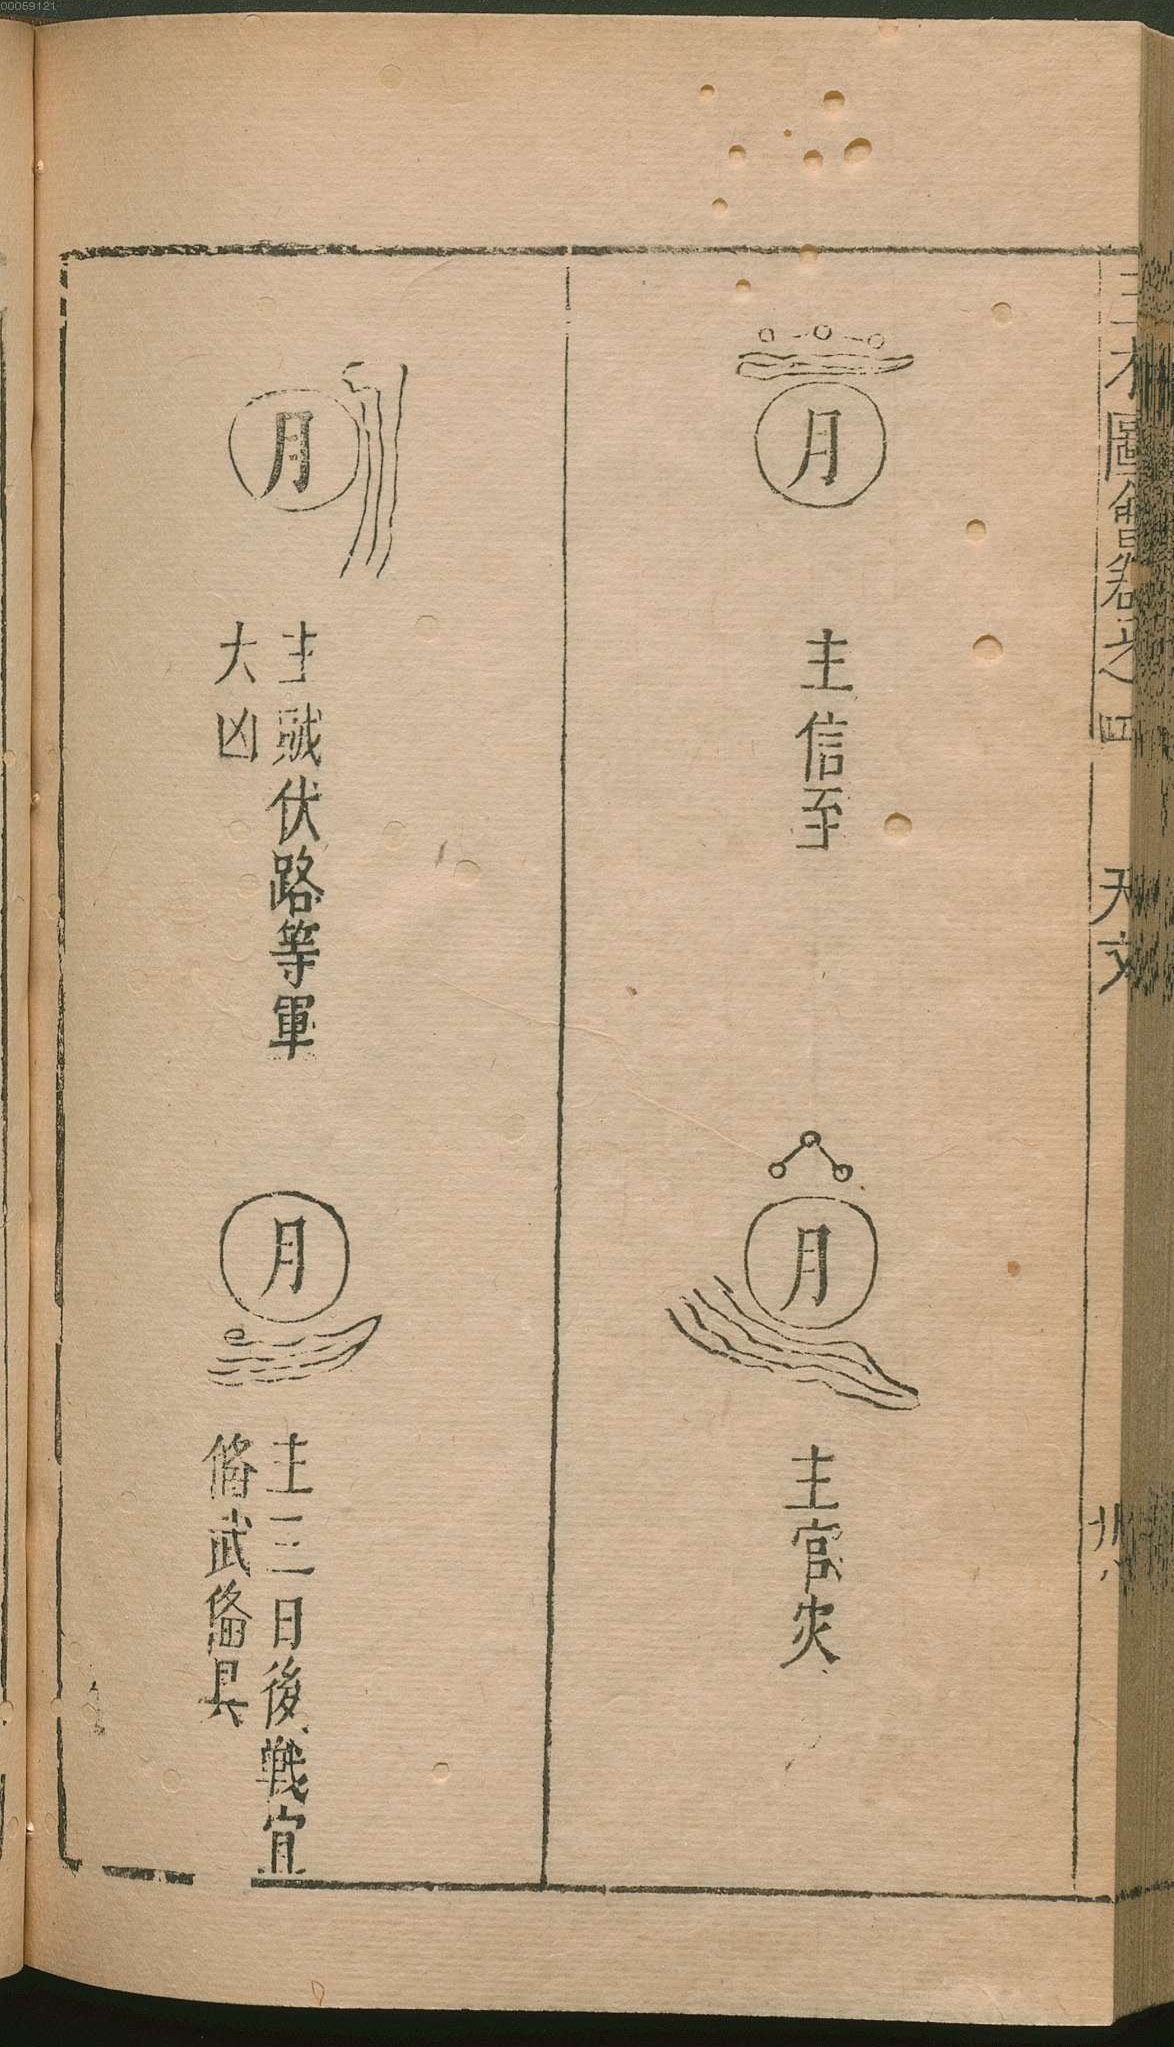 00059121
三才圖會卷之四
天文
月
主信至
月
主官災
月
主賊伏路等軍
大凶
月
主三日後戰宜
脩武俻具